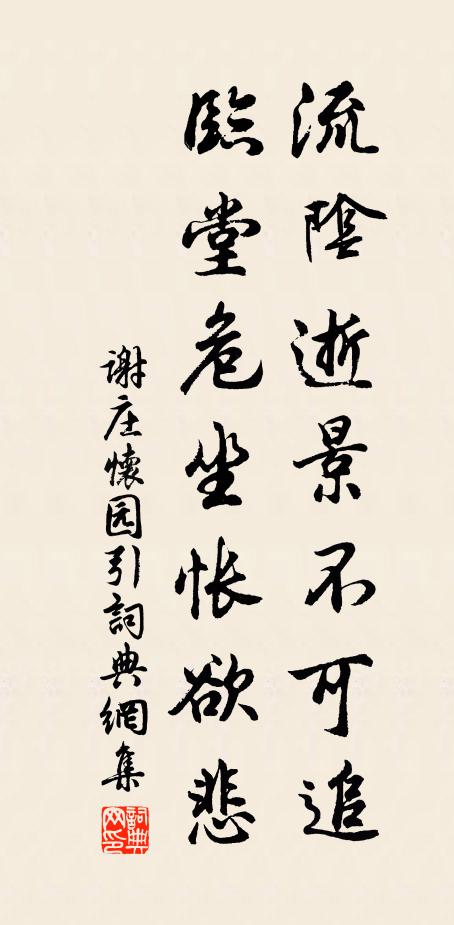 流陰逝景不可追
臨堂危坐悵欲悲
谢庄懷园引詞典網集
詞典網印